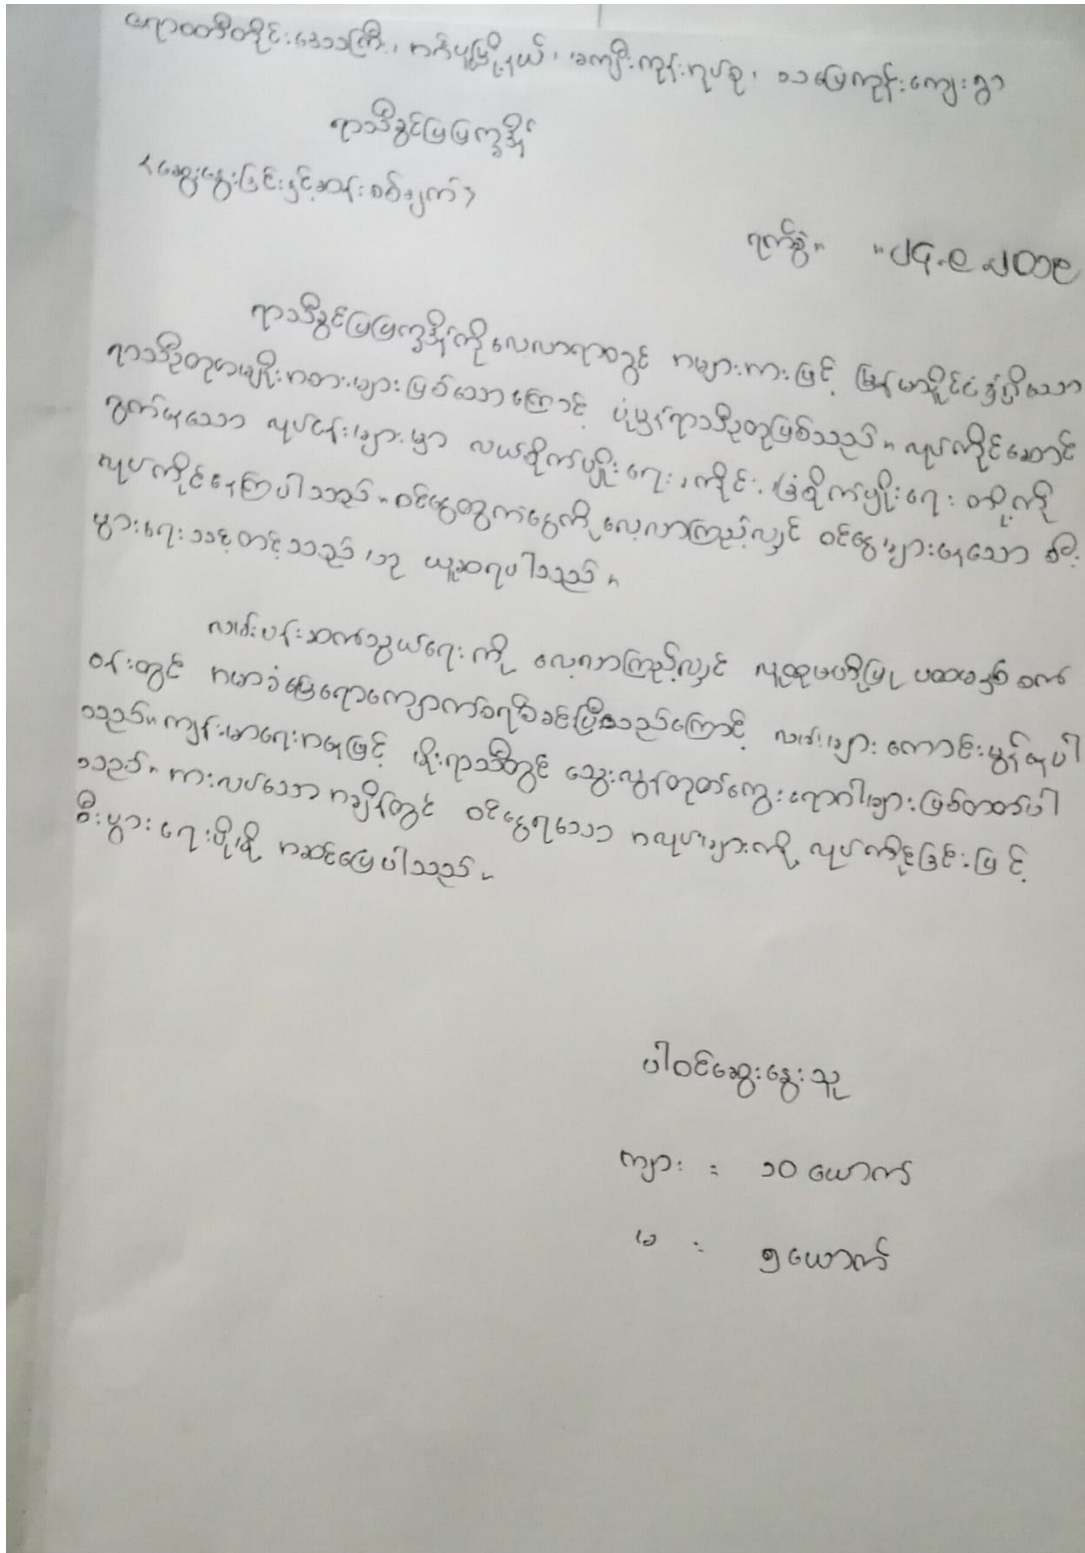 ဧရာဝတီတိုင်းဒေသကြီး၊ အင်္ဂပူမြို့နယ်၊ မကျီးကုန်းအုပ်စု၊ သမြေကုန်းကျေးရွာ
ရာသီခွင်ပြပြက္ခဒိန်
<ဆွေးနွေးခြင်းနှင့်ဆန်းစစ်ချက်>
ရက်စွဲ။ ။၂၄.၉.၂၀၁၉
ရာသီခွင်ပြပြက္ခဒိန်ကိုလေ့လာရာတွင် အများအားဖြင့် မြန်မာနိုင်ငံ၌ရှိသော
ရာသီဥတုအမျိုးအစားများဖြစ်သောကြောင့် ပုံမှန်ရာသီဥတုဖြစ်သည်။ လုပ်ကိုင်ဆောင်
ရွက်နေသော လုပ်ငန်းများမှာ လယ်စိုက်ပျိုးရေး၊ ကိုင်း၊ ခြံစိုက်ပျိုးရေး တို့ကို
လုပ်ကိုင်နေကြပါသည်။ ဝင်ငွေထွက်ငွေကို လေ့လာကြည့်လျှင် ဝင်ငွေများနေသော စီး
ပွားရေးသင့်တင့်သည် ဟု ယူဆရပါသည်။
လမ်းပန်းဆက်သွယ်ရေးကို လေ့လာကြည့်လျှင် လူထုဗဟိုပြု ပထမနှစ် စက်
ဝန်းတွင် အမာခံမြေရောကျောက်စရစ်ခင်းပြီးသည်ကြောင့် လမ်းများ ကောင်းမွန်နေပါ
သည်။ ကျန်းမာရေးအနေဖြင့် မိုးရာသီတွင် သွေးလွန်တုတ်ကွေးရောဂါများဖြစ်တတ်ပါ
သည်။ အားလပ်သော အချိန်တွင် ဝင်ငွေရသော အလုပ်များကို လုပ်ကိုင်ခြင်းဖြင့်
စီးပွားရေးပိုမို အဆင်ပြေပါသည်။
ပါဝင်ဆွေးနွေးသူ
ကျား = ၁၀ ယောက်
မ = ၅ ယောက်